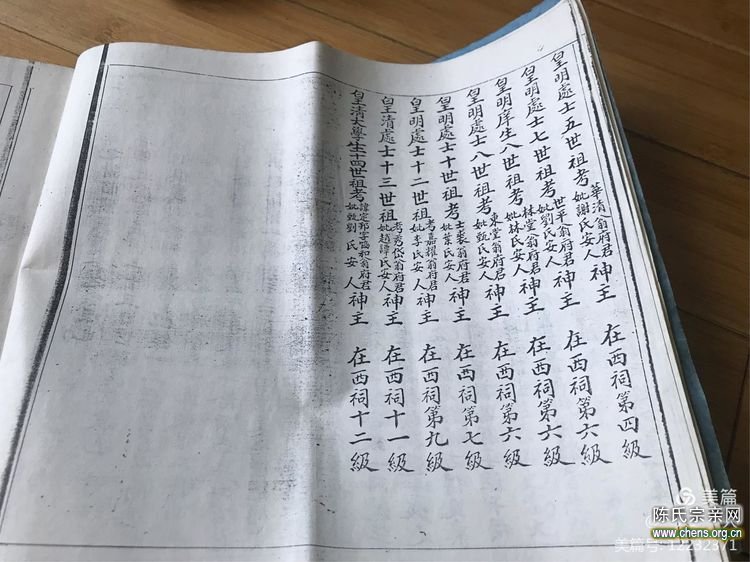 皇明處士五世祖考華清翁府君妣謝氏安人神主 在西祠第四級
皇明處士七世祖考世平翁府君妣劉氏安人神主 在西祠第六級
皇明庠生八世祖考林堂翁府君妣林氏安人神主 在西祠第六級
皇明處士八世祖考東堂翁府君妣甄氏安人神主 在西祠第六級
皇明處士十世祖考士裘翁府君妣葉氏安人神主 在西祠第七級
皇明處士十二世祖考嘉耀翁府君妣李氏安人神主 在西祠第九級
皇清處士十三世祖考秀岱翁府君妣趙譚氏安人神主 在西祠十一級
皇清大學生十四世祖考諱定邦字協和翁府君妣甄劉氏安人神主 在西祠十二級
美篇
陈氏宗亲网
www.chens.org.cn
美篇号: 12232371